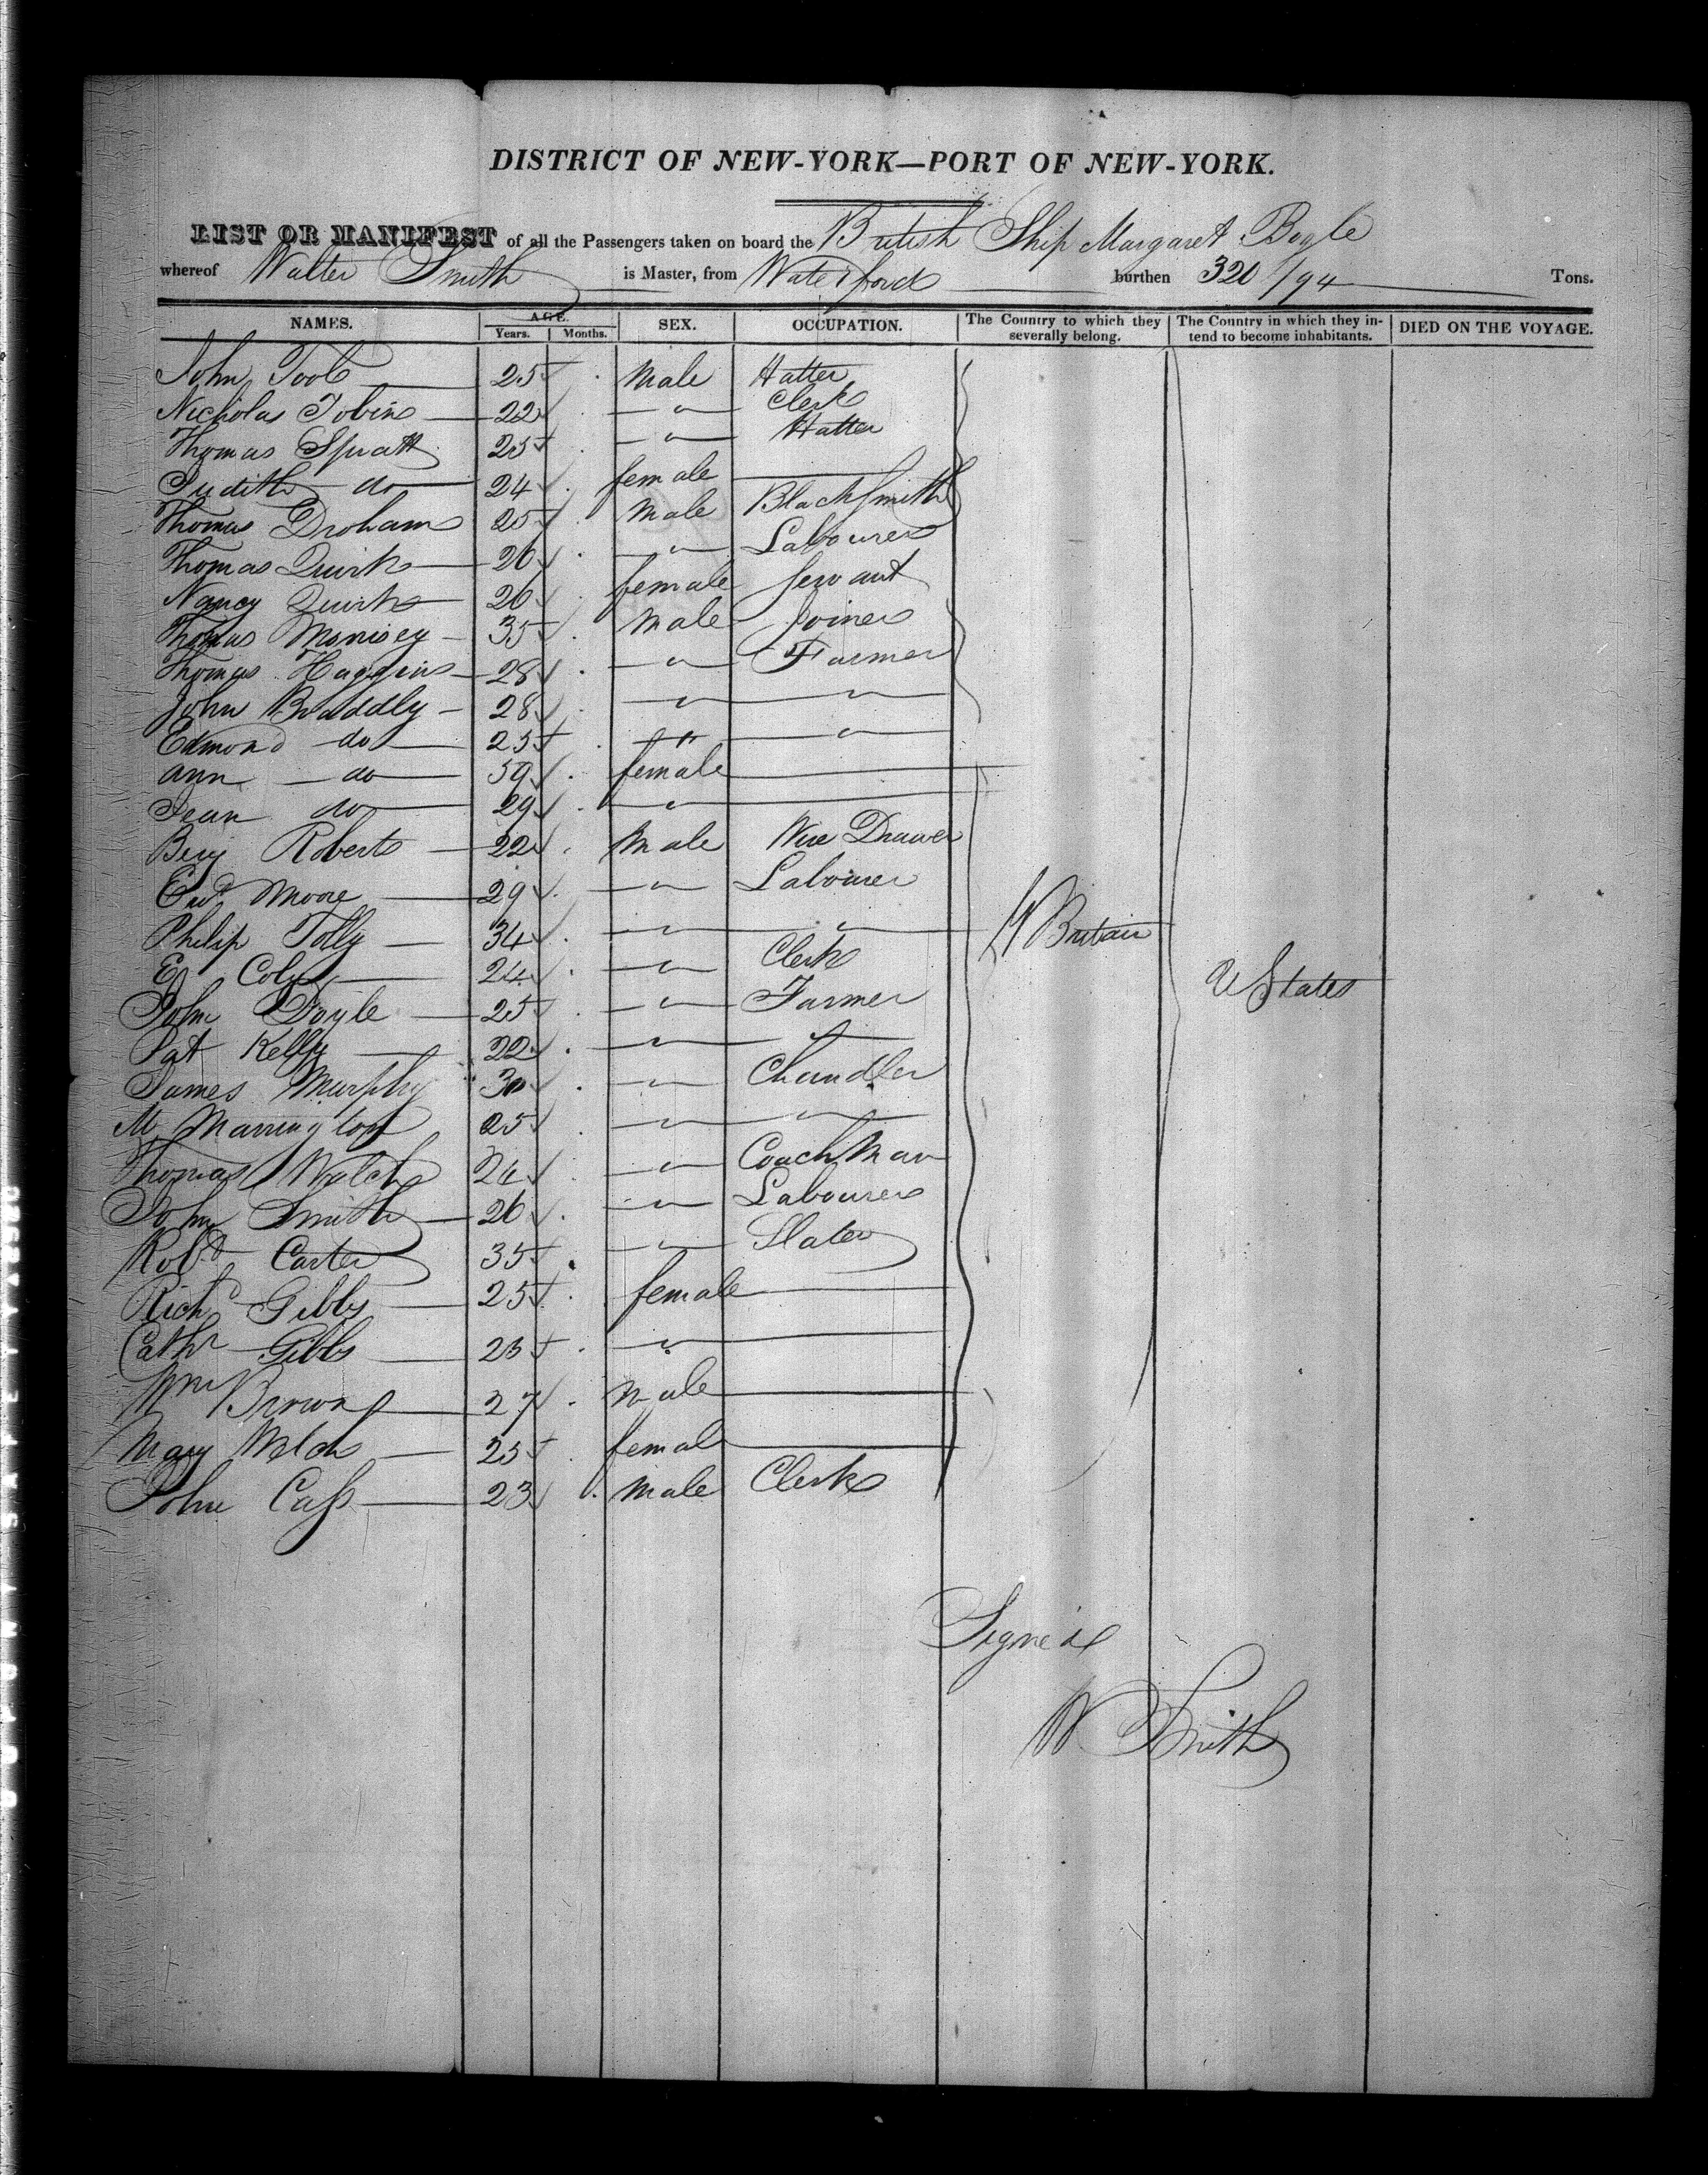 DISTRICT OF NEW-YORK—PORT OF NEW-YORK.
LIST OR MANIFEST of all the Passengers taken on board the British Ship Margaret Bogle
whereof Walter Smith is Master, from Waterford burthen 320 /94 Tons.
NAMES. AGE. Years. Months. SEX. OCCUPATION. The Country to which they severally belong. The Country in which they intend to become inhabitants. DIED ON THE VOYAGE.
John Toole 25 Male Hatter
Nicholas Tobin 22 " Clerk
Thomas Spratt 25 " Hatter
Judith do 24 female
Thomas Droham 25 Male BlackSmith
Thomas Quirk 26 " Labourer
Nancy Quirk 26 female Servant
Thomas 35 Male Joiner
Thomas Haggins 28 " Farmer
John Braddly 28 " "
Edmond do 25 " "
Ann do 59 female
Jean do 29 "
Benj Roberts 22 Male Wire Drawer
Edwd Moore 29 " Labourer
Philip Tolly 34 " " G Britain
24 " Clerk
U States
John Doyle 25 " Farmer
Pat Kelly 22 " "
James Murphy 30 " Chandler
M Marrington 25 " "
Thomas Walch 24 " Coach Man
John Smith 26 " Labourer
Robt Carter 35 " Slater
Richd Gibbs 25 female
Cathr Gibbs 25 "
Wm Brown 27 Male
Mary Welch 25 female
John Cass 23 Male Clerk
Signed
W Smith